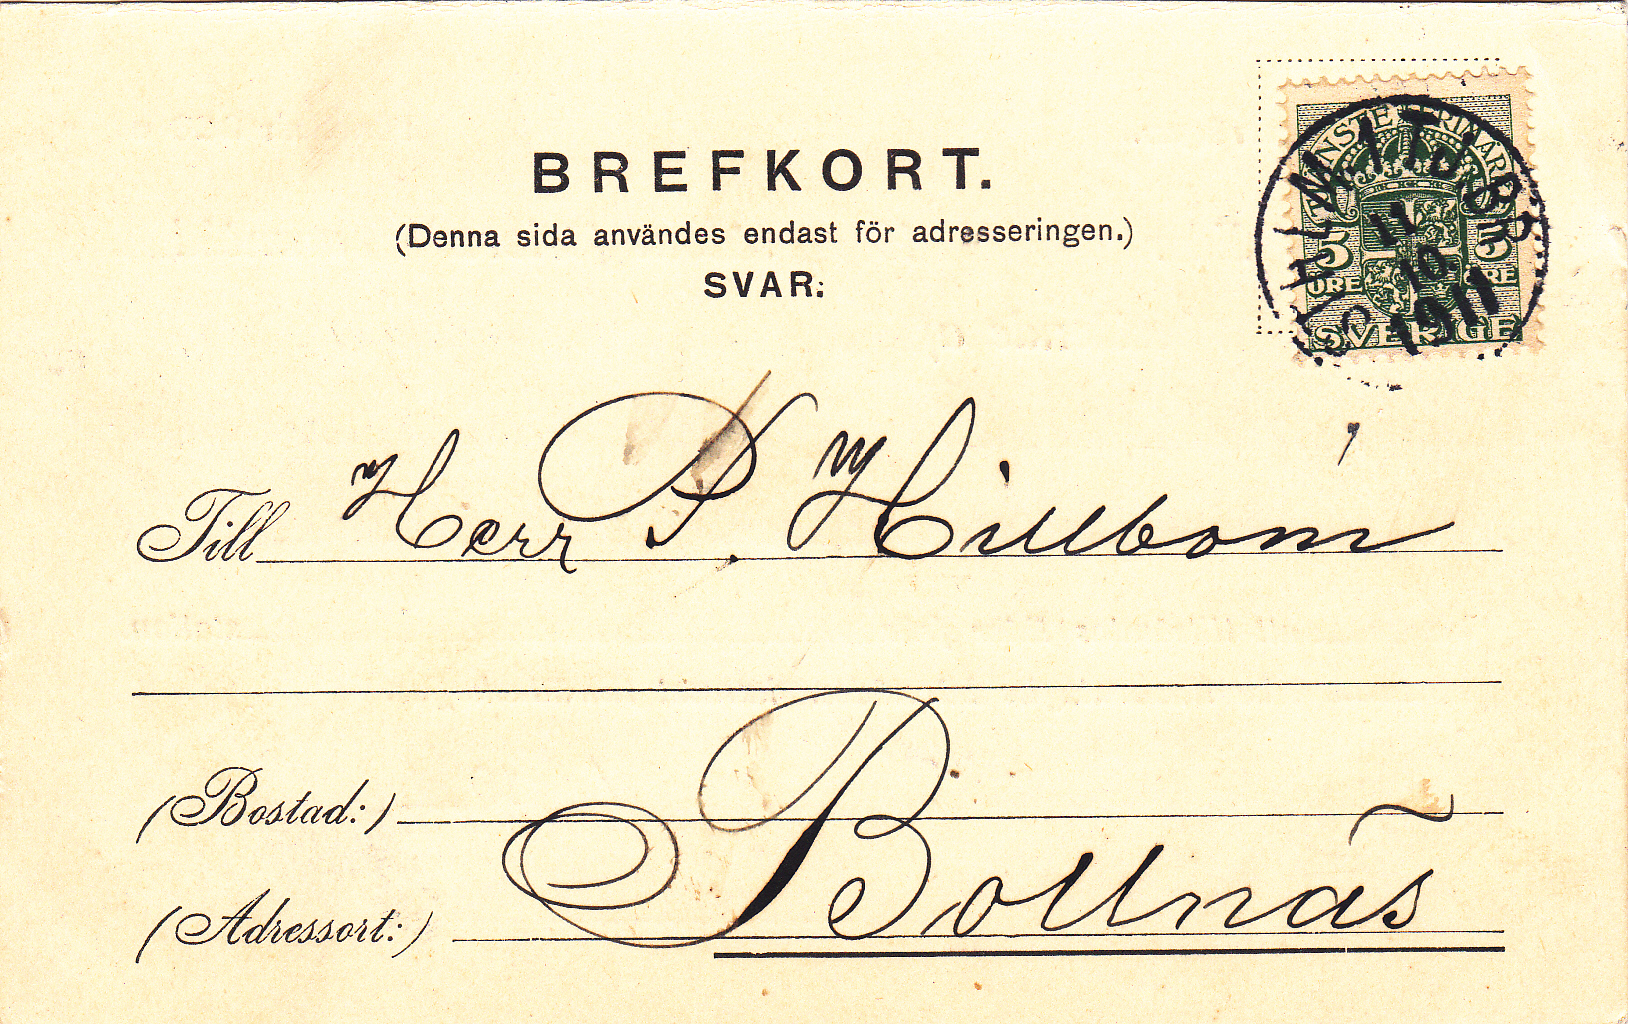 BREFKORT.
(Denna sida användes endast för adresseringen.)
SVAR:
TJÄNSTEFRIMÄRKE
5 5
ÖRE ÖRE
SVERIGE
11
10
1911
Till Herr P. Hillbom
(Bostad:)
(Adressort:) Bollnäs